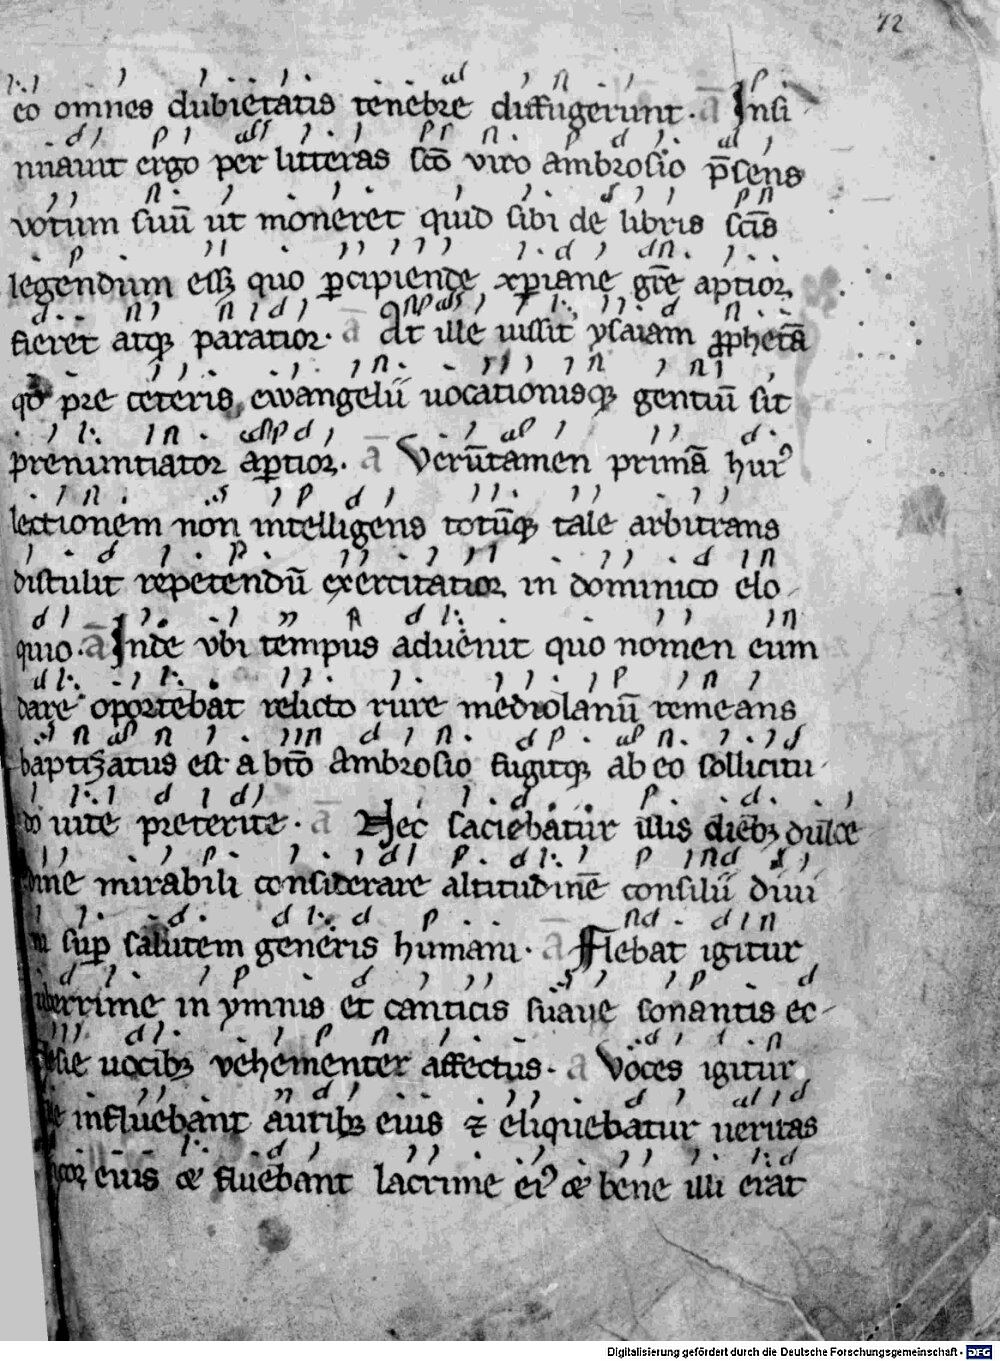 72
eo omnes dubietatis tenebre diffugerunt. a Insi
nuauit ergo per litteras sc̄o viro ambrosio p̄sens
votum suū ut moneret quid sibi de libris sc̄is
legendum esset quo ꝑcipiende xp̄iane gr̄e aptior
fieret atqꝫ paratior. a At ille iussit ysaiam ꝓphetā
qd̄ pre ceteris ewangelii uocationisqꝫ gentiū sit
prenuntiator aꝑtior. a Verūtamen primā huiꝰ
lectionem non intelligens totūqꝫ tale arbitrans
distulit repetendū exercitatior in dominico elo
quio. a Inde vbi tempus aduenit quo nomen eum
dare oportebat relicto rure mediolanū remeans
baptizatus est a btō Ambrosio fugitqꝫ ab eo sollicitu
do uite preterite. a Nec saciebatur illis diebꝫ dulce
dine mirabili considerare altitudinē consilii diui
ni suꝑ salutem generis humani. a Flebat igitur
uberrime in ymnis et canticis suaue sonantis ec
clesie uocibꝫ vehementer affectus. a Voces igitur
ille influebant auribꝫ eius ⁊ eliquebatur ueritas
eius & fluebant lacrime eiꝰ & bene illi erat
Digitalisierung gefördert durch die Deutsche Forschungsgemeinschaft - DFG